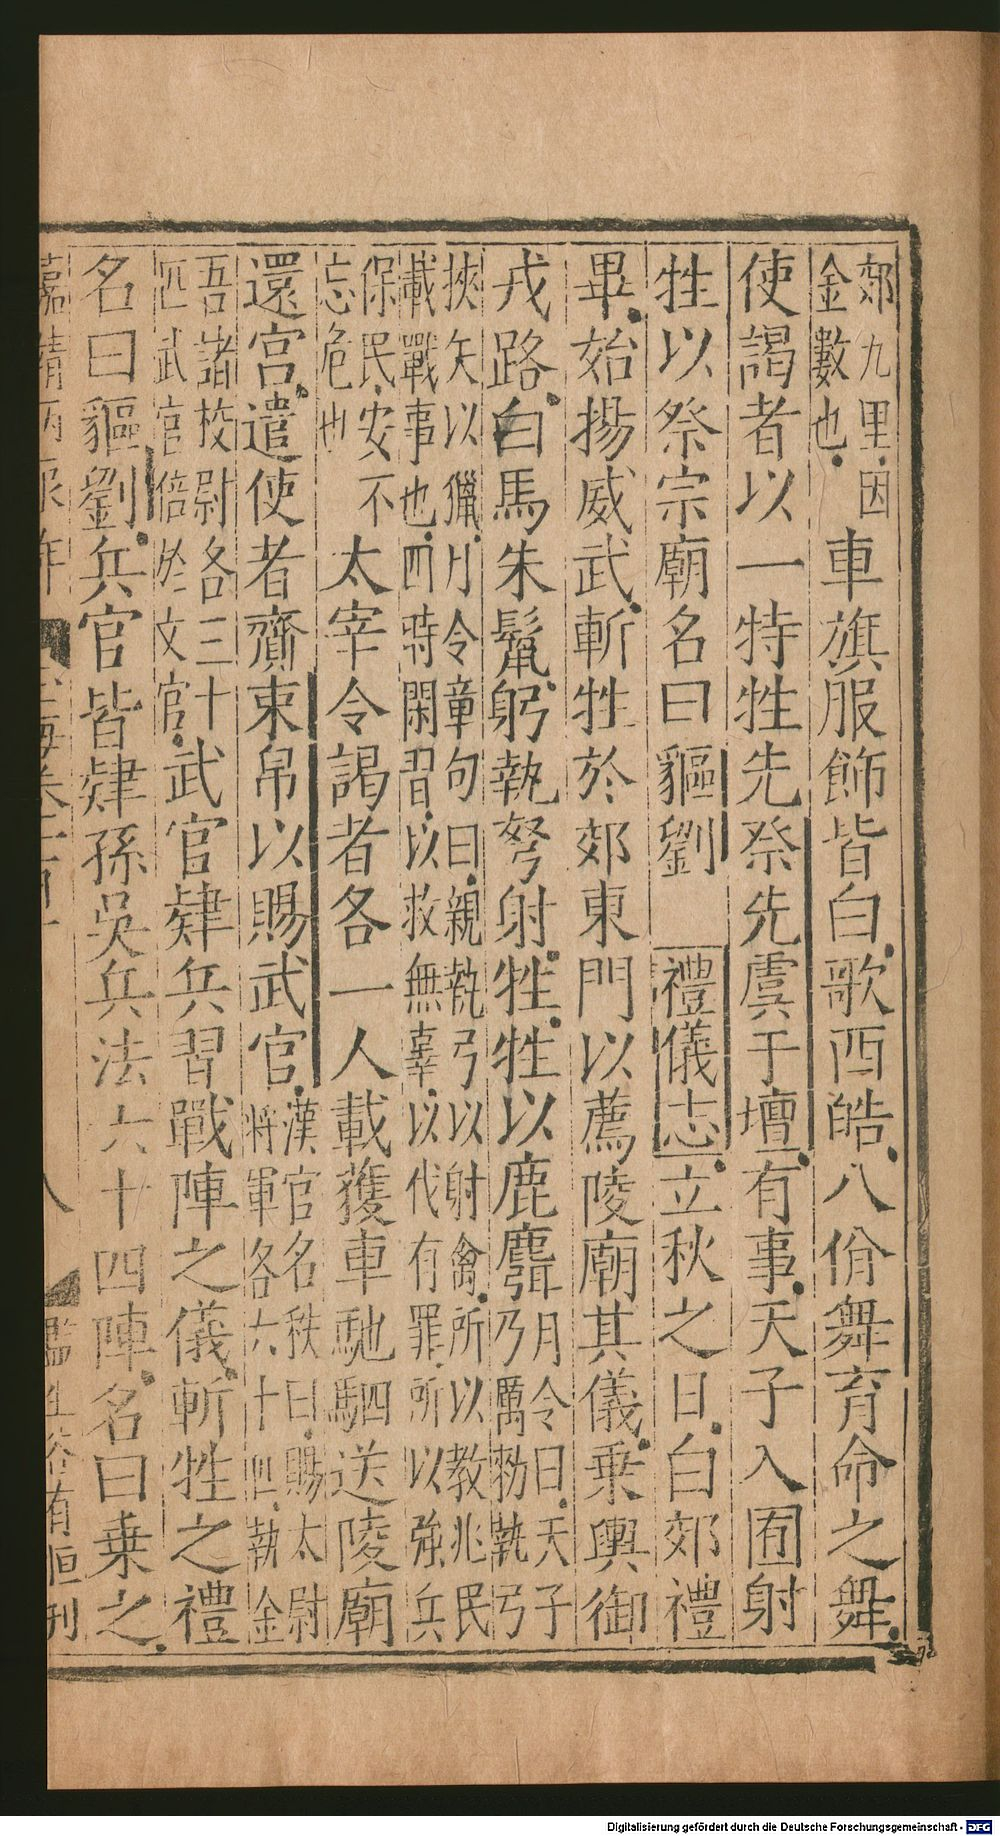 郊九里因
金數也車旗服飾皆白歌西皓八佾舞育命之舞
使謁者以一特牲先祭先虞于壇有事天子入囿射
牲以祭宗廟名曰貙劉 禮儀志立秋之日白郊禮
畢始揚威武斬牲於郊東門以薦陵廟其儀乗輿御
戎路白馬朱鬛躬執弩射牲牲以鹿麛月令曰天子
乃厲勑執弓
挾矢以獵月令章句曰親執弓以射禽所以教兆民
載戰事也四時閑習以救無辜以代有罪所以強兵
保民安不
忘危也太宰令謁者各一人載獲車馳駟送陵廟
還宫遣使者齎束帛以賜武官漢官名秩曰賜太尉
將軍各六十匹執金
吾諸校尉各三十
匹武官倍於文官武官肄兵習戰陣之儀斬牲之禮
名曰貙劉兵官皆肄孫吳兵法六十四陣名曰乗之
嘉靖丙辰年 玉海卷一百 八 監生 有恒刊
Digitalisierung gefördert durch die Deutsche Forschungsgemeinschaft - DFG